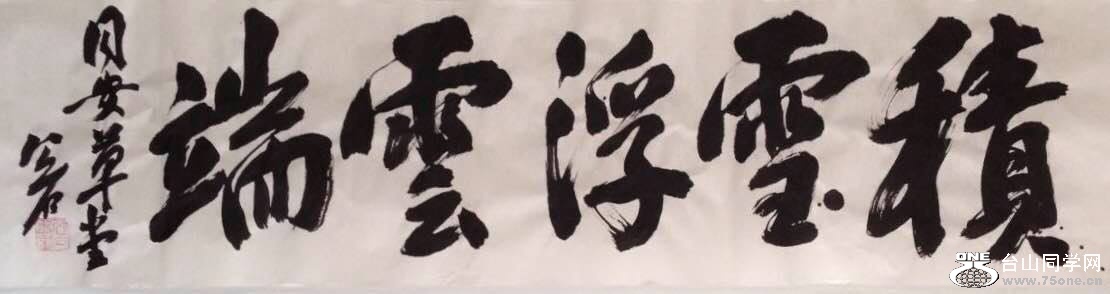 積雪浮雲端
同安草堂
ONE
台山同学网
www.75one.cn